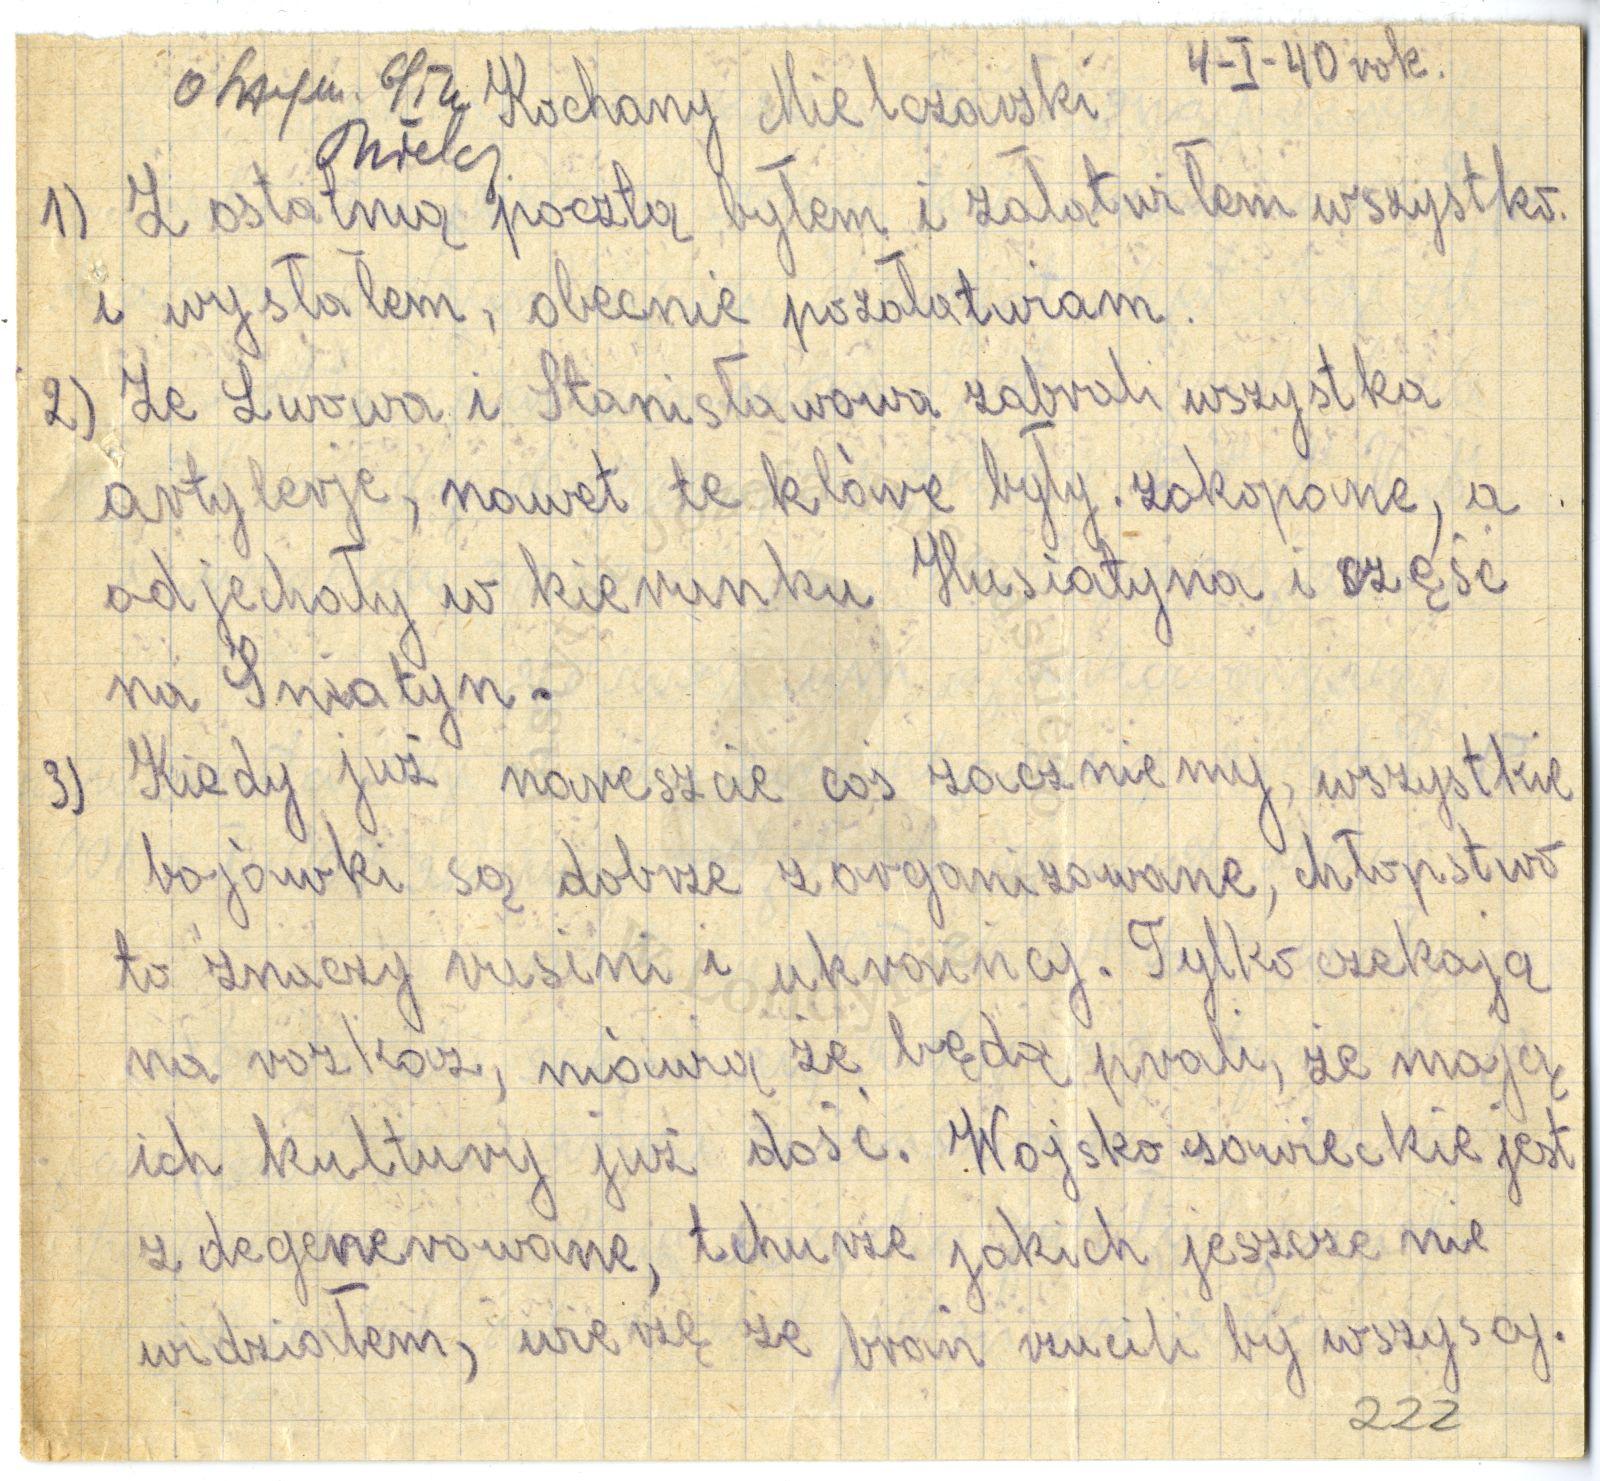 4-I-40 rok.
Otrzym.
Kochany Mielczarski
Mielcz
1) Z ostatnią pocztą byłem i załatwiłem wszystko.
i wysłałem, obecnie pozałatwiam.
2) Ze Lwowa i Stanisławowa zabrali wszystka
artylerje, nawet te klóre były zakopane, a
odjechały w kierunku Husiatyna i część
na Śniatyn.
3) Kiedy już nareszcie coś zaczniemy, wszystkie
bojówki są dobrze zorganizowane, chłopstwo
to znaczy rusini i ukraińcy. Tylko czekają
na rozkaz, mówią że będą prali, że mają
ich kultury już dość. Wojsko sowieckie jest
zdegenerowane, tchurze jakich jeszcze nie
widziałem, wierzę że broń rzucili by wszyscy.
222